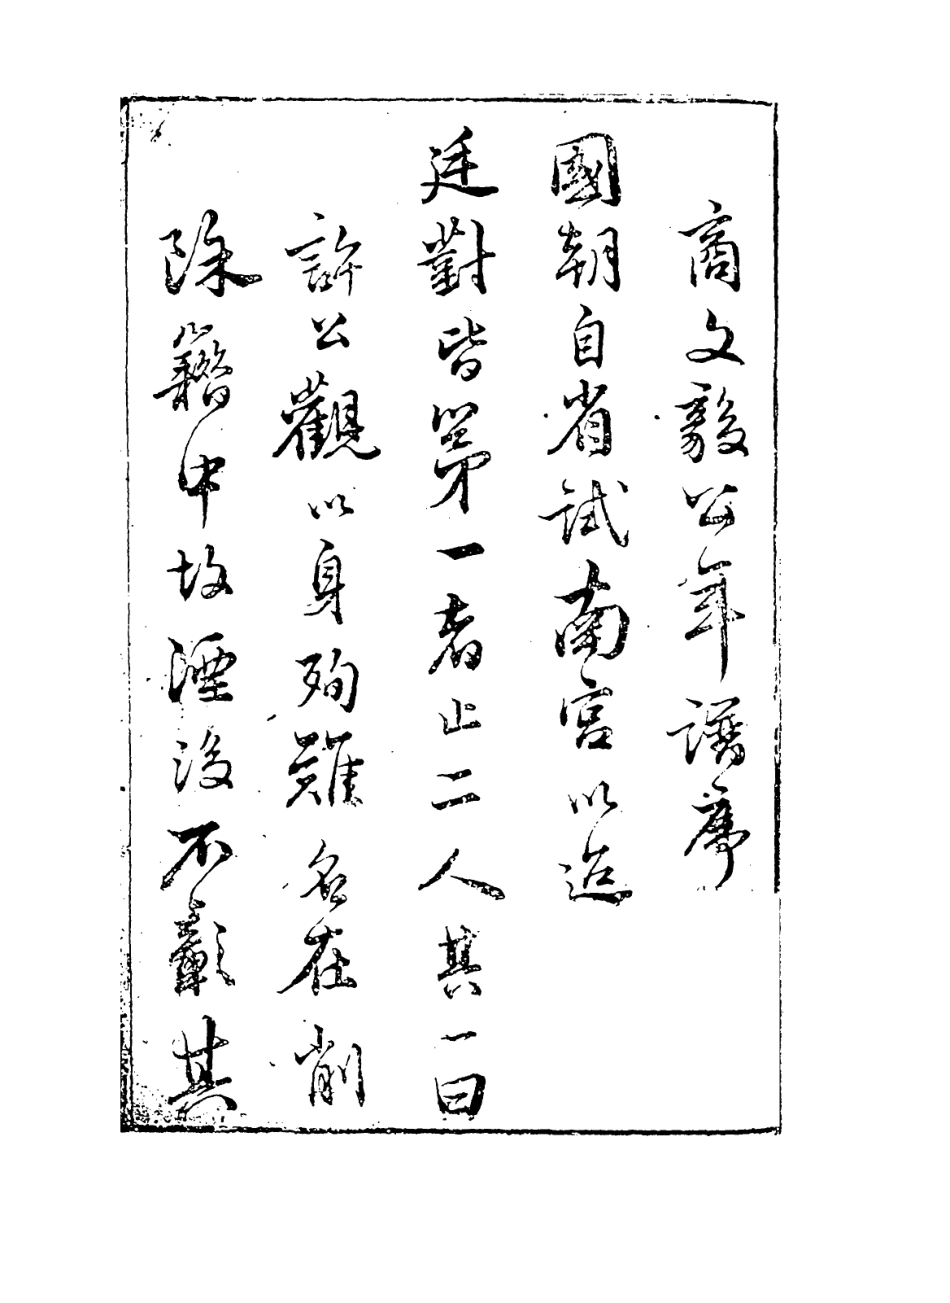 商文毅公年譜序
國朝自省試南宮以迨
廷對皆第一者止二人其一曰
許公觀以身殉難名在削
除籍中故湮沒不彰其